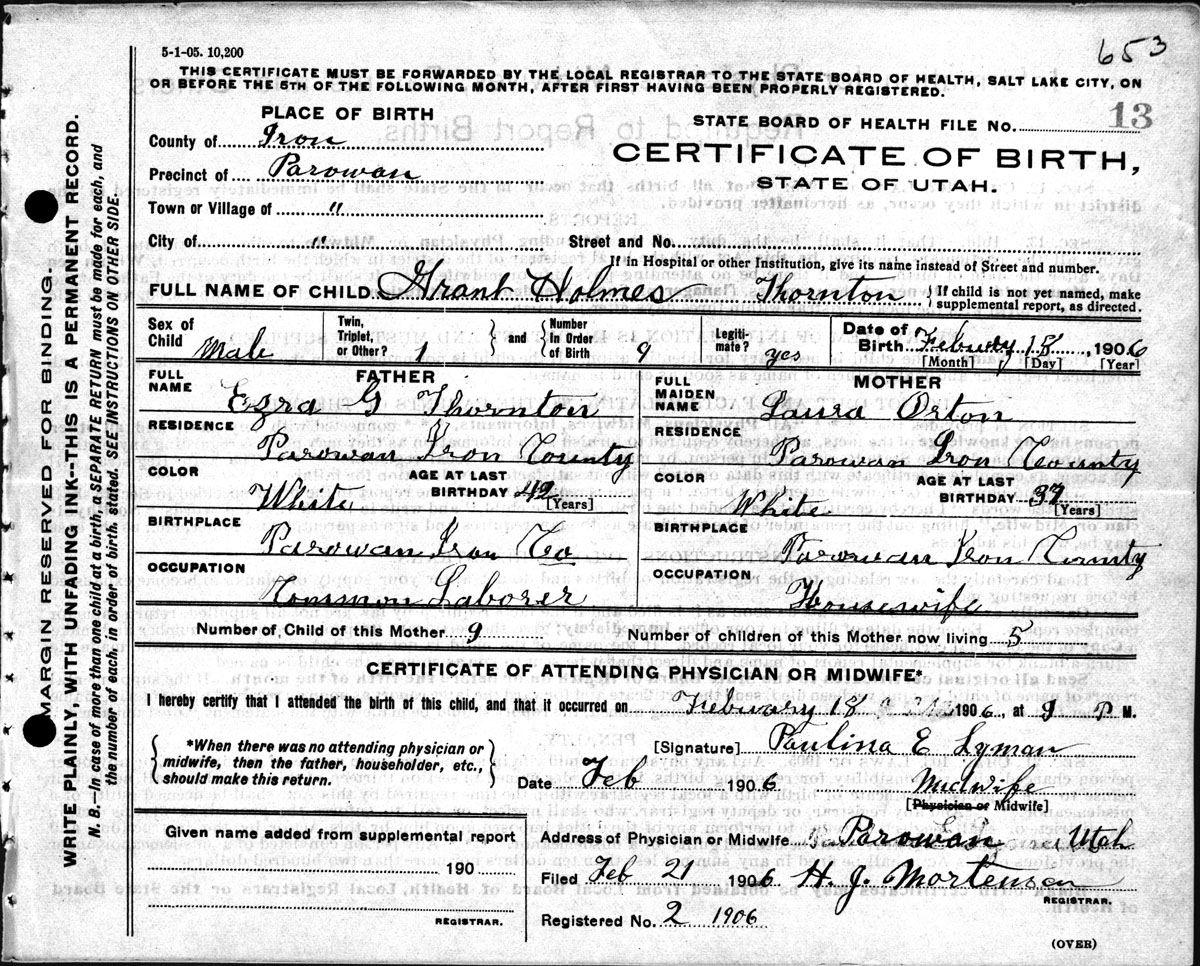 653
5-1-05. 10,200
THIS CERTIFICATE MUST BE FORWARDED BY THE LOCAL REGISTRAR TO THE STATE BOARD OF HEALTH, SALT LAKE CITY, ON
OR BEFORE THE 5TH OF THE FOLLOWING MONTH, AFTER FIRST HAVING BEEN PROPERLY REGISTERED.
PLACE OF BIRTH
County of Iron
Precinct of Parowan
Town or Village of "
City of "
STATE BOARD OF HEALTH FILE NO. 13
CERTIFICATE OF BIRTH,
STATE OF UTAH.
Street and No.
If in Hospital or other Institution, give its name instead of Street and number.
FULL NAME OF CHILD Grant Holmes Thornton { If child is not yet named, make supplemental report, as directed.
Sex of Child Male
Twin, Triplet, or Other? 1 } and { Number In Order of Birth 9
Legiti- mate? yes
Date of Birth Febuary 18, 1906
[Month] [Day] [Year]
FATHER
FULL NAME Ezra G Thornton
RESIDENCE Parowan Iron County
COLOR White
AGE AT LAST BIRTHDAY 42 [Years]
BIRTHPLACE Parowan Iron Co
OCCUPATION Common Laborer
MOTHER
FULL MAIDEN NAME Laura Orton
RESIDENCE Parowan Iron County
COLOR White
AGE AT LAST BIRTHDAY 37 [Years]
BIRTHPLACE Parowan Iron County
OCCUPATION Housewife
Number of Child of this Mother 9 Number of children of this Mother now living 5
CERTIFICATE OF ATTENDING PHYSICIAN OR MIDWIFE*
I hereby certify that I attended the birth of this child, and that it occurred on Febuary 18 1906, at 9 P M.
{ *When there was no attending physician or midwife, then the father, householder, etc., should make this return. }
[Signature] Paulina E Lyman
Date Feb 1906 Midwife
[Physician or Midwife]
Given name added from supplemental report
190
REGISTRAR.
Address of Physician or Midwife Parowan Utah
Filed Feb 21 1906 H. J. Mortensen
REGISTRAR.
Registered No. 2 1906
(OVER)
MARGIN RESERVED FOR BINDING.
WRITE PLAINLY, WITH UNFADING INK--THIS IS A PERMANENT RECORD.
N. B.—In case of more than one child at a birth a SEPARATE RETURN must be made for each, and
the number of each, in order of birth, stated. SEE INSTRUCTIONS ON OTHER SIDE.